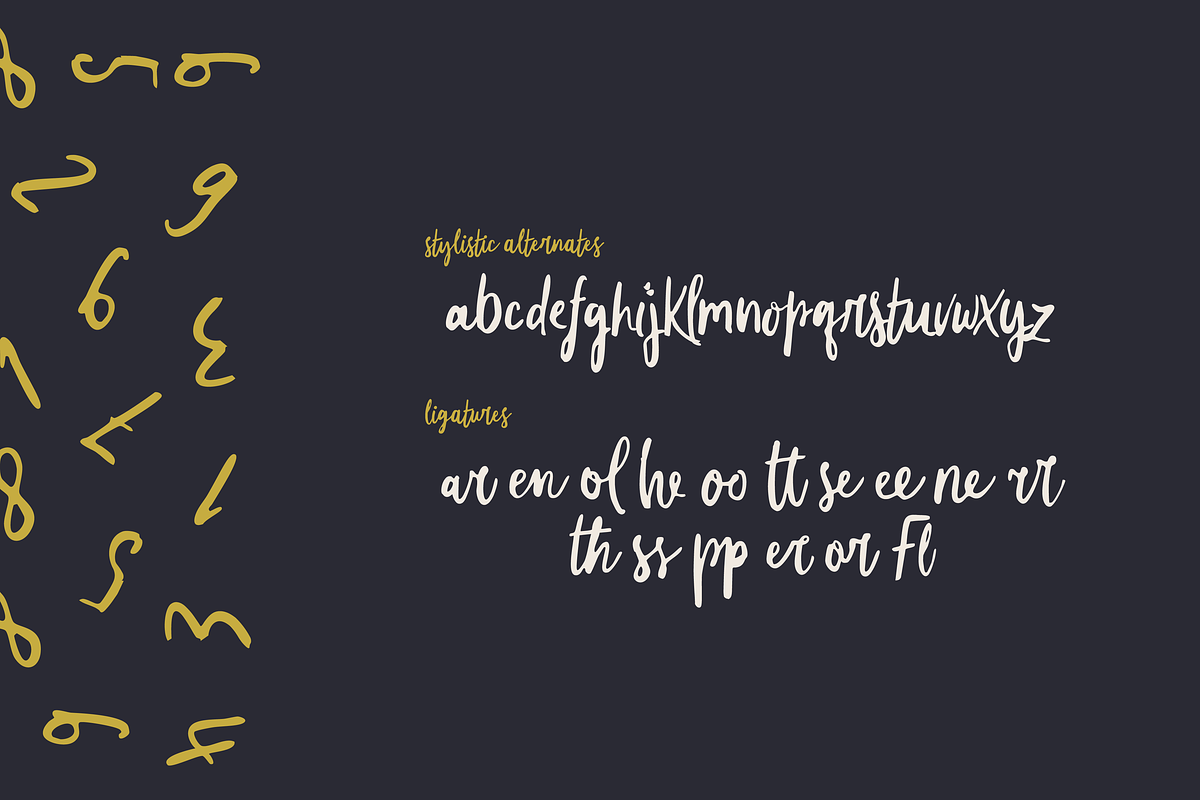 stylistic alternates
abcdefghijklmnopqrstuvwxyz
ligatures
ar en ol he oo tt se ee ne rr
th ss pp er or Fl